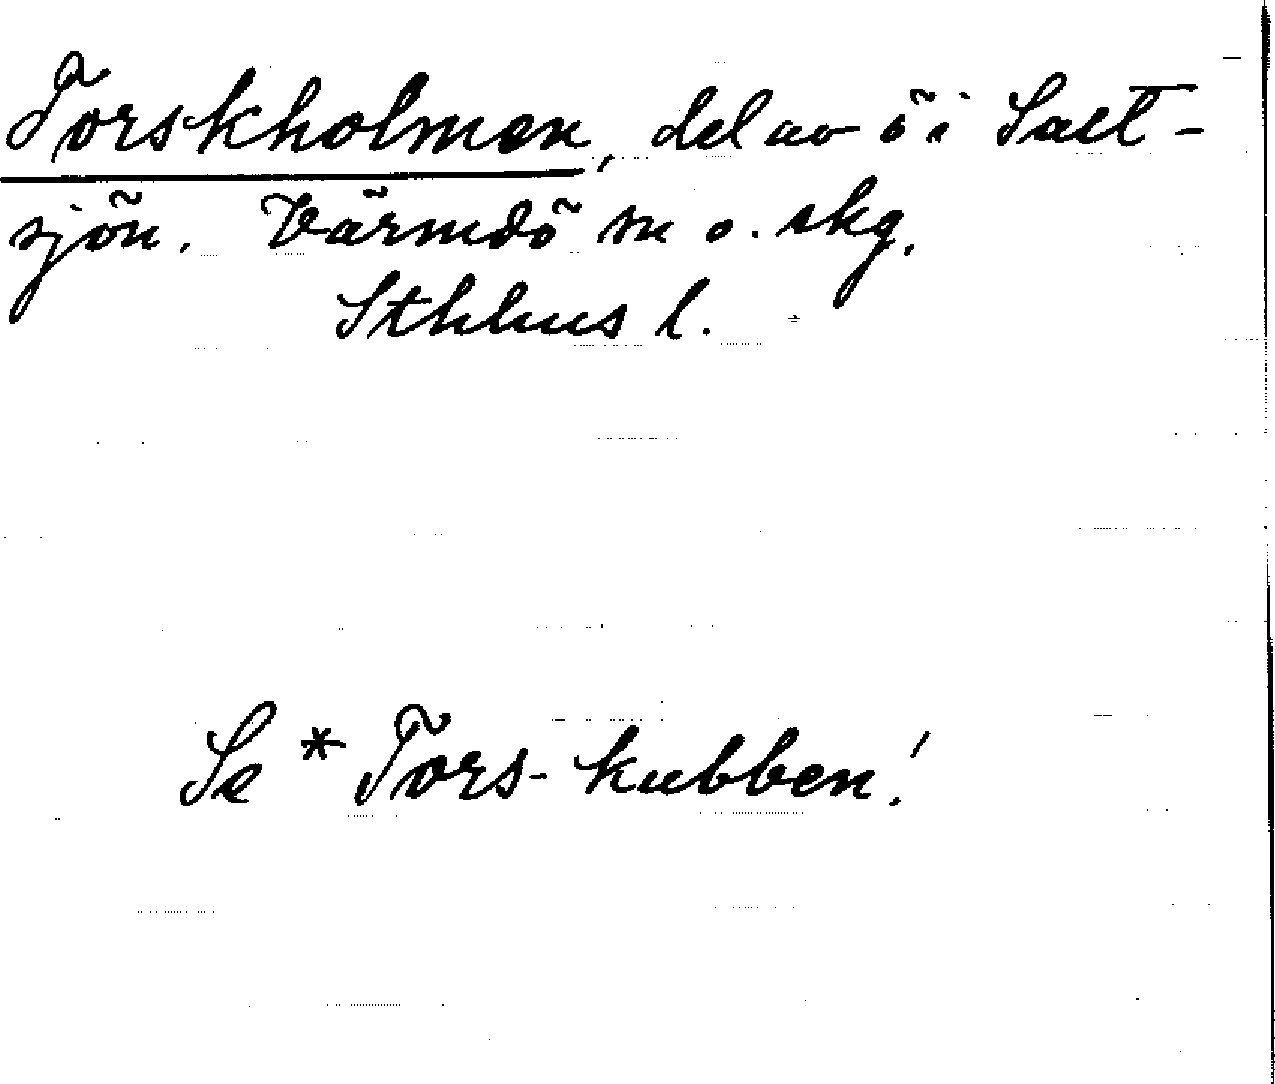 Torskholmen, del av ö i Salt-
sjön. Värmdö sn o. skg.
Sthlms l.
Se *Tors-kubben!